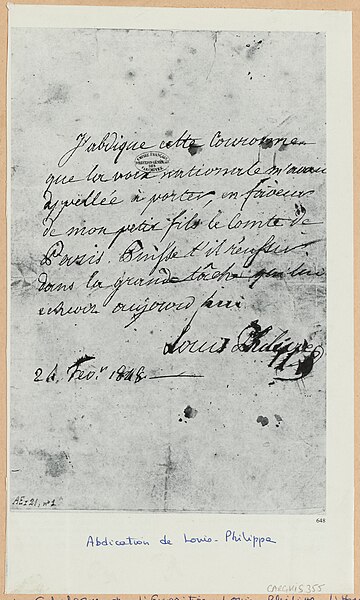 J'abdique cette Couronne
que la voix nationale m'avait
appellée à porter, en faveur
de mon petit fils le Comte de
Paris. Puisse t'il réussir
dans la grande tâche qui lui
echoit aujourd'hui
Louis Philippe
24 Fevr. 1848
AE I 21, n° 1
648
Abdication de Louis-Philippe
CARCHIS 355